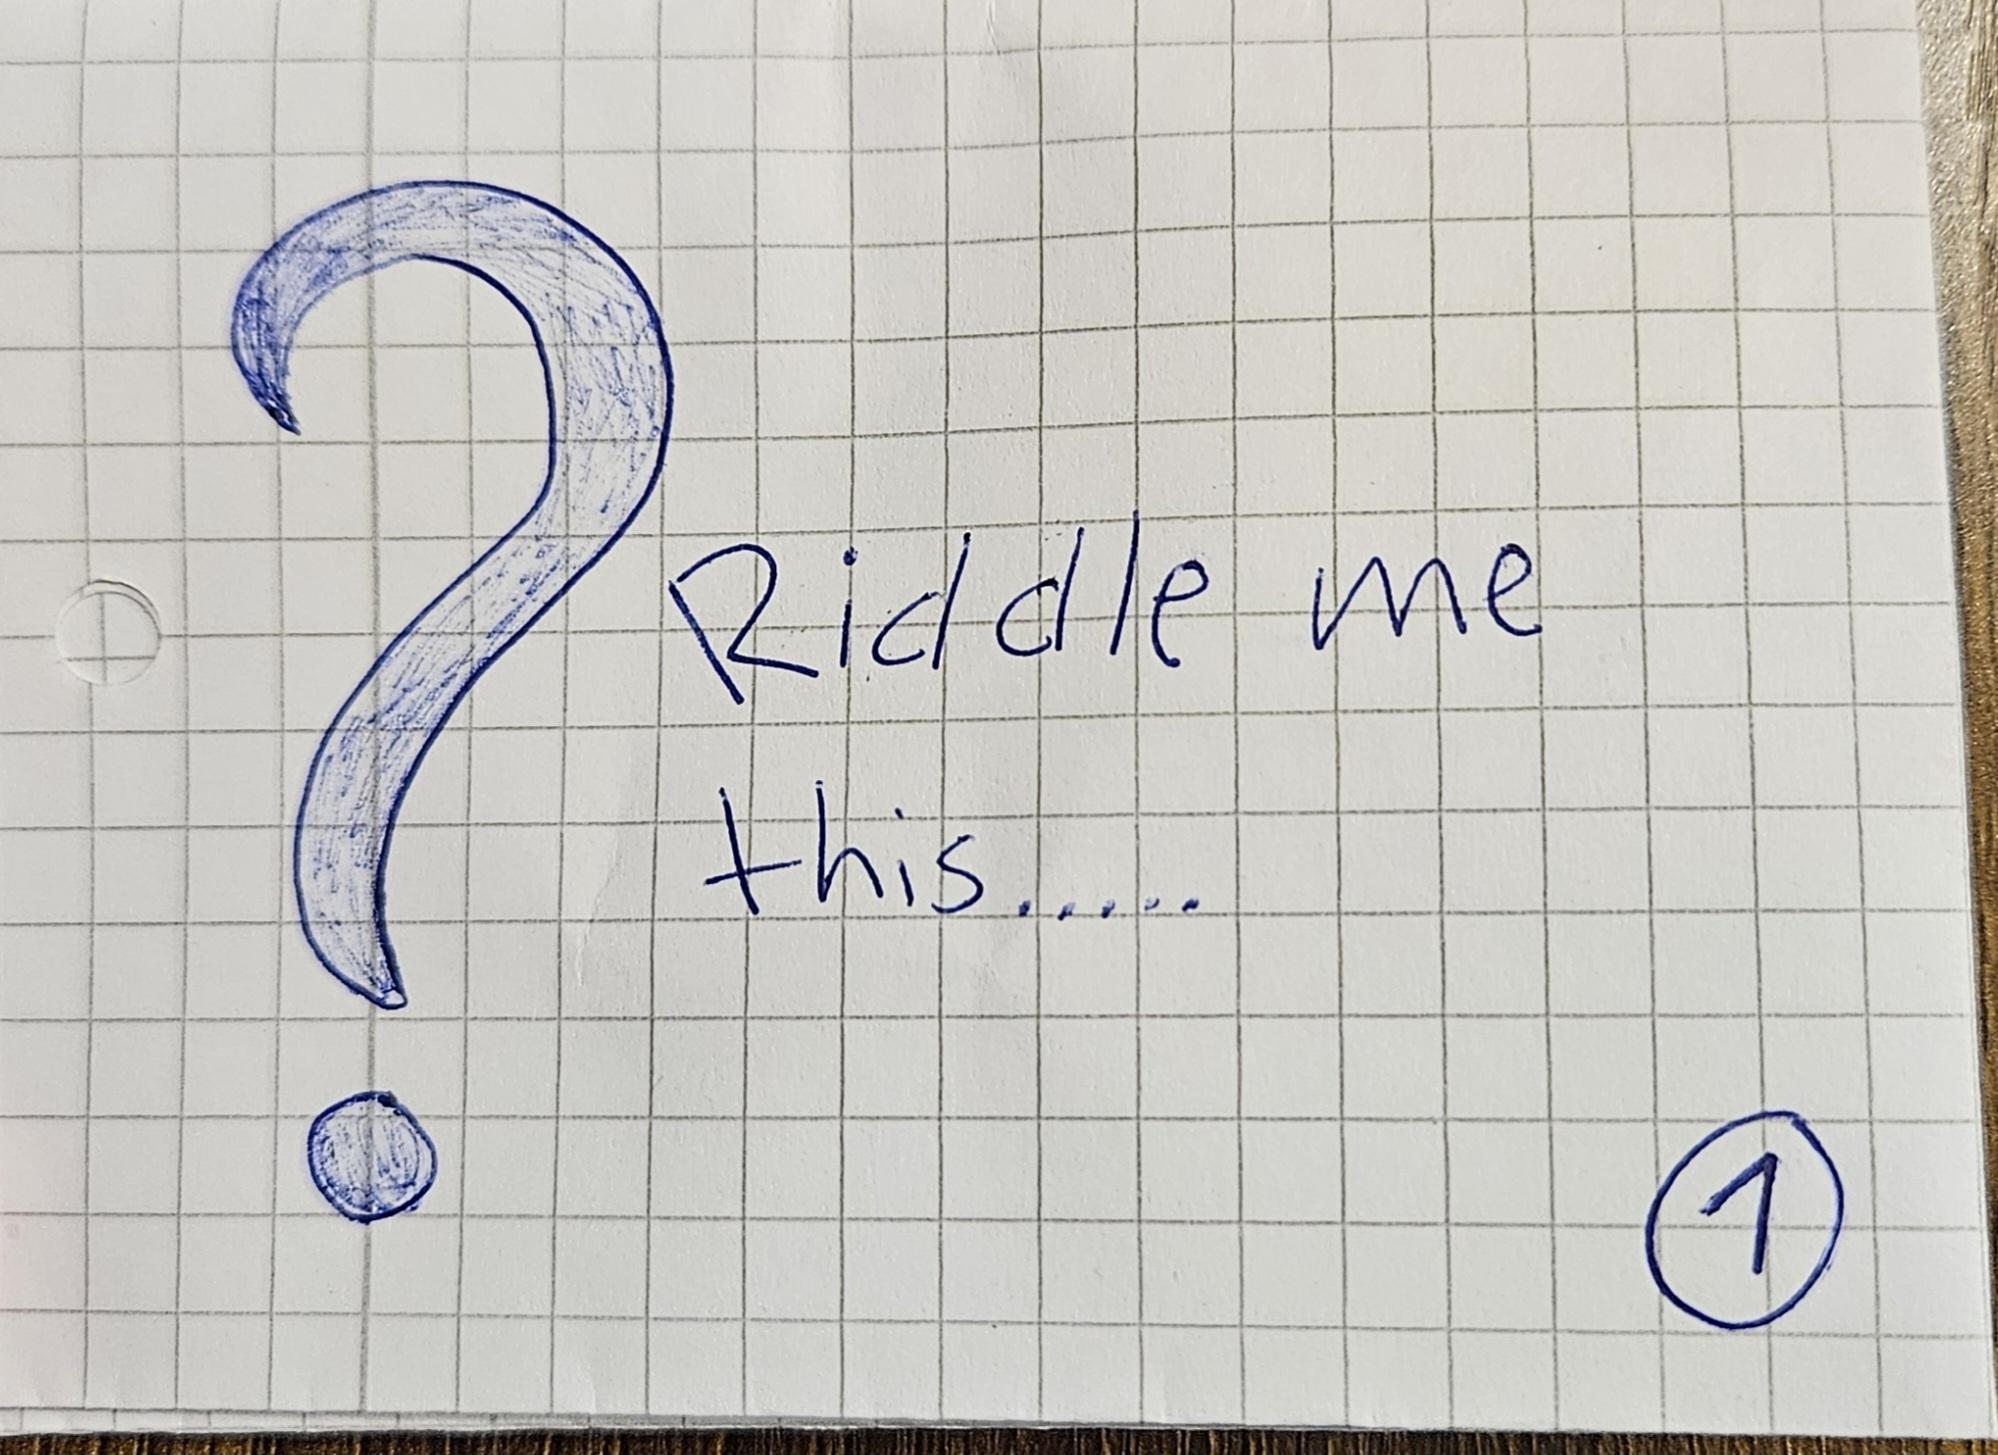 ?
Riddle me
this.....
1